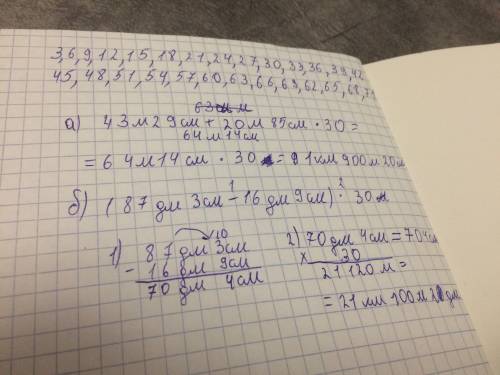 3,6,9,12,15,18,21,24,27,30,33,36,39,42
45,48,51,54,57,60,63,66,69,62,65,68,
а) 43м 29см + 20м 85см · 30 =
64м 14см
= 64м 14см · 30 = 1км 900м 20м
б) (87дм 3см - 16дм 9см) · 30
1 2
10
1) 87дм 3см
- 16дм 9см
70дм 4см
2) 70дм 4см = 704см
× 30
21120м =
= 21км 100м 2 дм